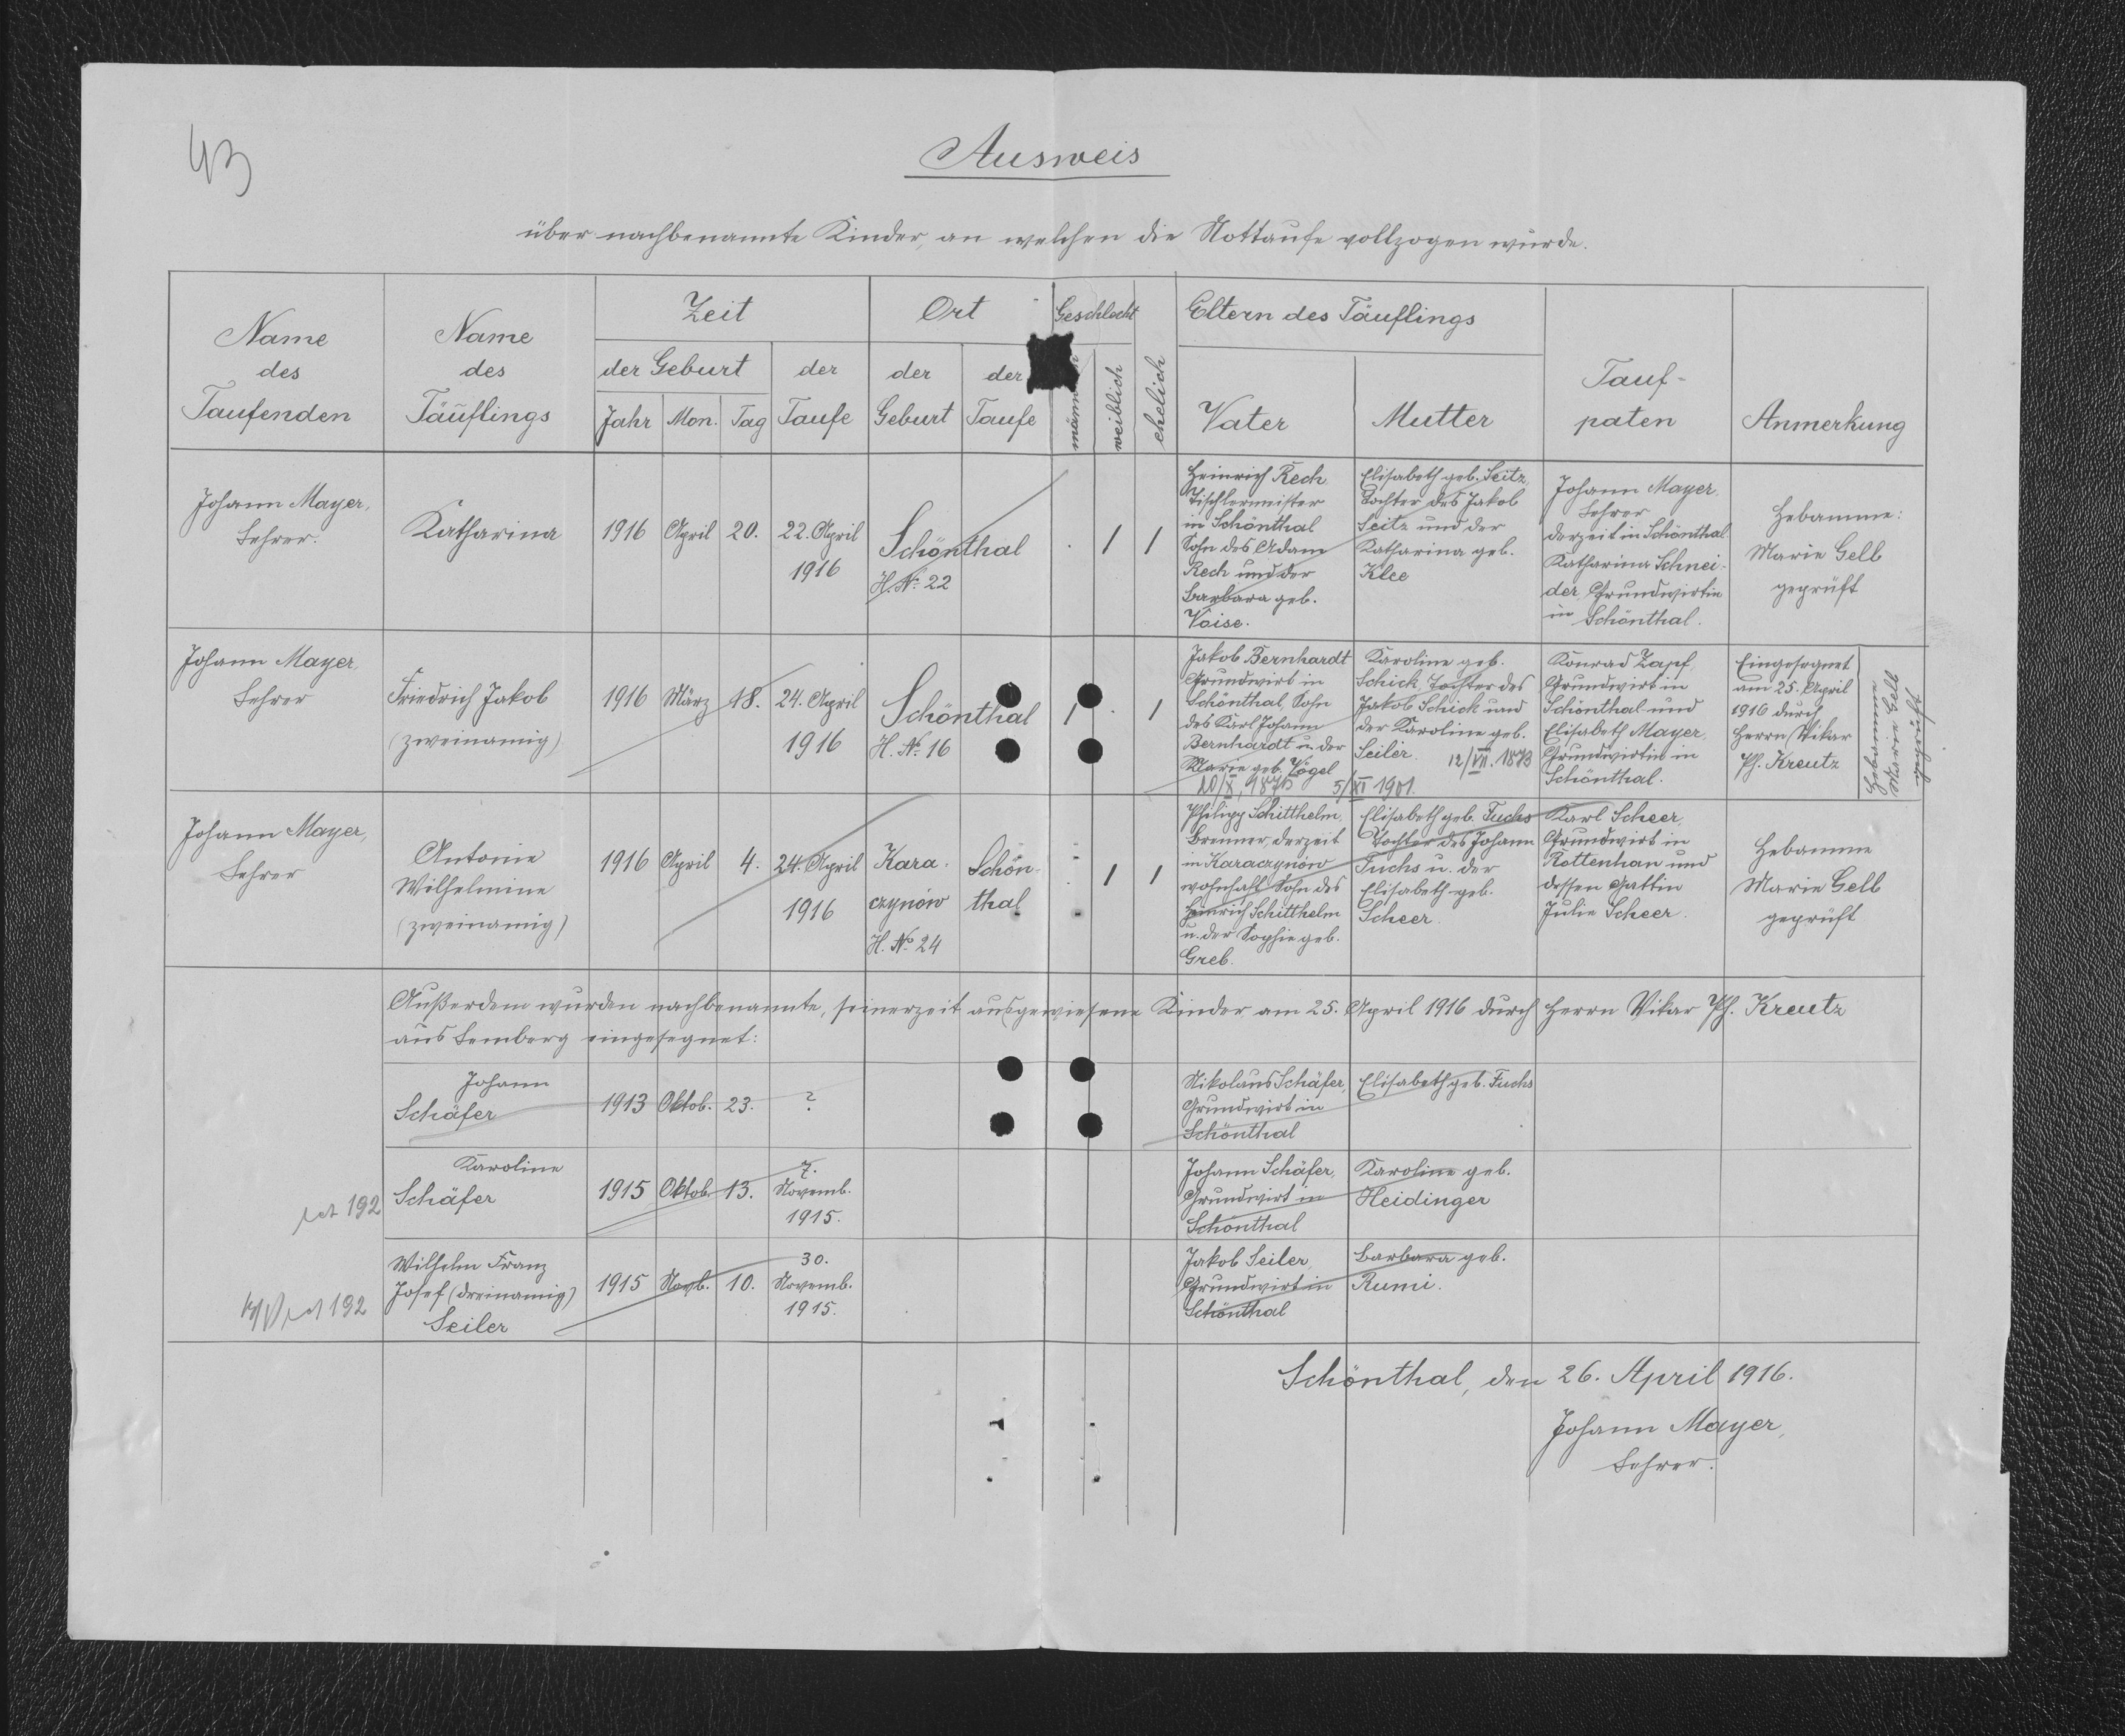 43
Ausweis
über nachbenannte Kinder, an welchen die Nottaufe vollzogen wurde.
Name des Taufenden
Name des Täuflings
Zeit
der Geburt
Jahr Mon. Tag
der Taufe
Ort
der Geburt
der Taufe
Geschlecht
weiblich
ehelich
Eltern des Täuflings
Vater
Mutter
Tauf-
paten
Anmerkung
Johann Mayer,
Lehrer.
Katharina
1916 April 20.
22. April
1916
Schönthal
H. No. 22
1 1
Heinrich Rech,
Tischlermeister
in Schönthal
Sohn des Adam
Rech und der
Barbara geb.
Voise.
Elisabeth geb. Seitz,
Tochter des Jakob
Seitz und der
Katharina geb.
Klee
Johann Mayer,
Lehrer
derzeit in Schönthal
Katharina Schnei-
der, Grundwirtin
in Schönthal.
Hebamme:
Marie Gelb
geprüft
Johann Mayer,
Lehrer
Friedrich Jakob
(zweinamig)
1916 März 18.
24. April
1916
Schönthal
H. No. 16
1 1
Jakob Bernhardt
Grundwirt in
Schönthal, Sohn
des Karl Johann
Bernhardt u. der
Marie geb. Zögel
5/XI 1901.
Karoline geb.
Schick, Tochter des
Jakob Schick und
der Karoline geb.
Seiler. 12/VII. 1873
Konrad Zapf,
Grundwirt in
Schönthal und
Elisabeth Mayer,
Grundwirtin in
Schönthal.
Eingesegnet
am 25. April
1916 durch
Herrn Vikar
Ph. Kreutz
Hebamme
Marie Gelb
geprüft
Johann Mayer,
Lehrer
Antonie
Wilhelmine
(zweinamig)
1916 April 4.
24. April
1916
Kara-
czynów
H. No. 24
Schön-
thal
1 1
Philipp Schitthelm,
Brenner, derzeit
in Karaczynów
wohnhaft Sohn des
Heinrich Schitthelm
u. der Sophie geb.
Greb.
Elisabeth geb. Fuchs
Tochter des Johann
Fuchs u. der
Elisabeth geb.
Scheer.
Karl Scheer,
Grundwirt in
Rottenhan und
dessen Gattin
Julie Scheer.
Hebamme
Marie Gelb
geprüft
Außerdem wurden nachbenannte, seinerzeit ausgewiesene Kinder am 25. April 1916 durch Herrn Vikar Ph. Kreutz
aus Lemberg eingesegnet:
Johann
Schäfer
1913 Oktob. 23. ?
Nikolaus Schäfer,
Grundwirt in
Schönthal
Elisabeth geb. Fuchs
192
Karoline
Schäfer
1915 Oktob. 13.
7.
Novemb.
1915.
Johann Schäfer,
Grundwirt in
Schönthal
Karoline geb.
Heidinger
192
Wilhelm Franz
Josef (dreinamig)
Seiler
1915 Novb. 10.
30.
Novemb.
1915.
Jakob Seiler,
Grundwirt in
Schönthal
Barbara geb.
Rumi.
Schönthal, den 26. April 1916.
Johann Mayer,
Lehrer.